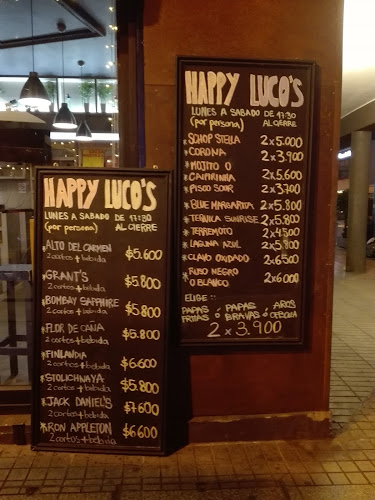 HAPPY LUCO'S
LUNES A SABADO DE 17:30
(por persona) AL CIERRE
*ALTO DEL CARMEN
2 cortos + bebida $5.600
*GRANT'S
2 cortos + bebida $5.800
*BOMBAY SAPPHIRE
2 cortos + bebida $5.800
*FLOR DE CAÑA
2 cortos + bebida $5.800
*FINLANDIA
2 cortos + bebida $6.600
*STOLICHNAYA
2 cortos + bebida $5.800
*JACK DANIEL'S
2 cortos + bebida $7.600
*RON APPLETON
2 cortos + bebida $6.600
HAPPY LUCO'S
LUNES A SABADO DE 17:30
(por persona) AL CIERRE
*SCHOP STELLA 2x5.000
*CORONA 2x3.900
*MOJITO O
CAIPIRINHA 2x5.600
*PISCO SOUR 2x3.700
*BLUE MARGARITA 2x5.800
*TEKUILA SUNRISE 2x5.800
*TERREMOTO 2x4.500
*LAGUNA AZUL 2x5.800
*CLAVO OXIDADO 2x6.500
*RUSO NEGRO
O BLANCO 2x6.000
ELIGE:
PAPAS Ó PAPAS Ó AROS
FRITAS BRAVAS CEBOLLA
2 x 3.900